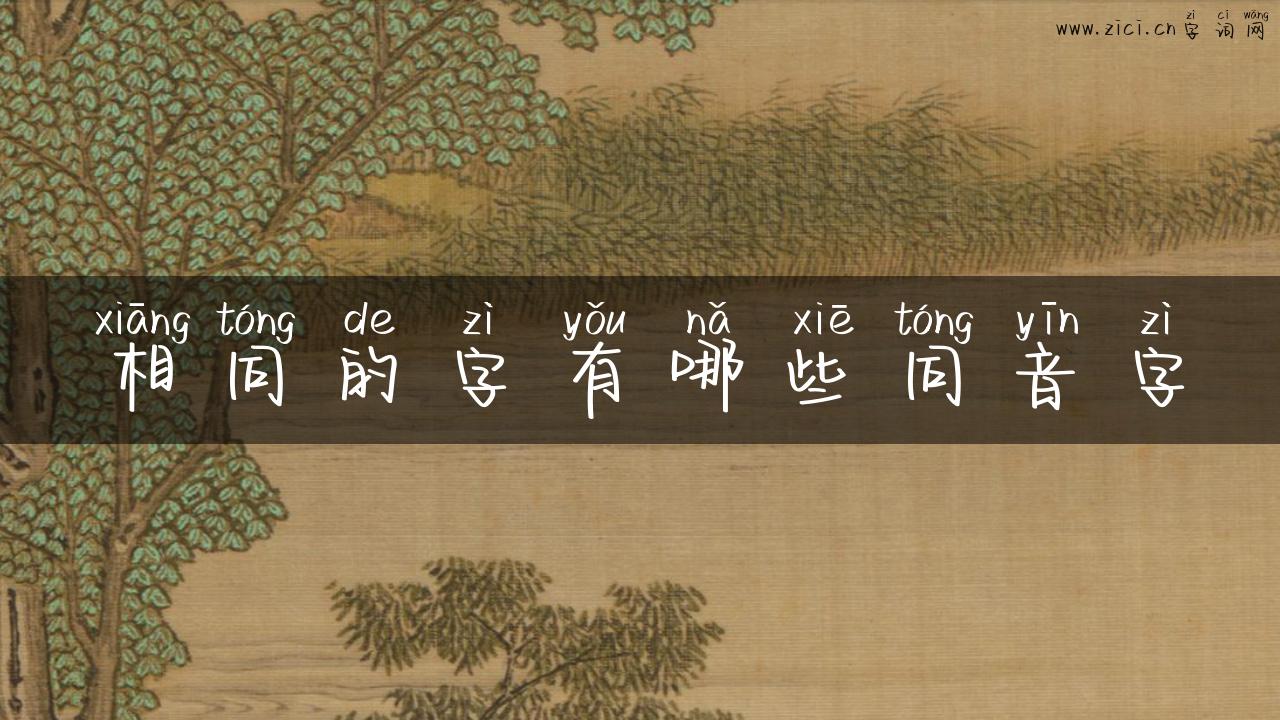 zì cí wǎng
www.zici.cn 字词网
xiāng tóng de zì yǒu nǎ xiē tóng yīn zì
相同的字有哪些同音字